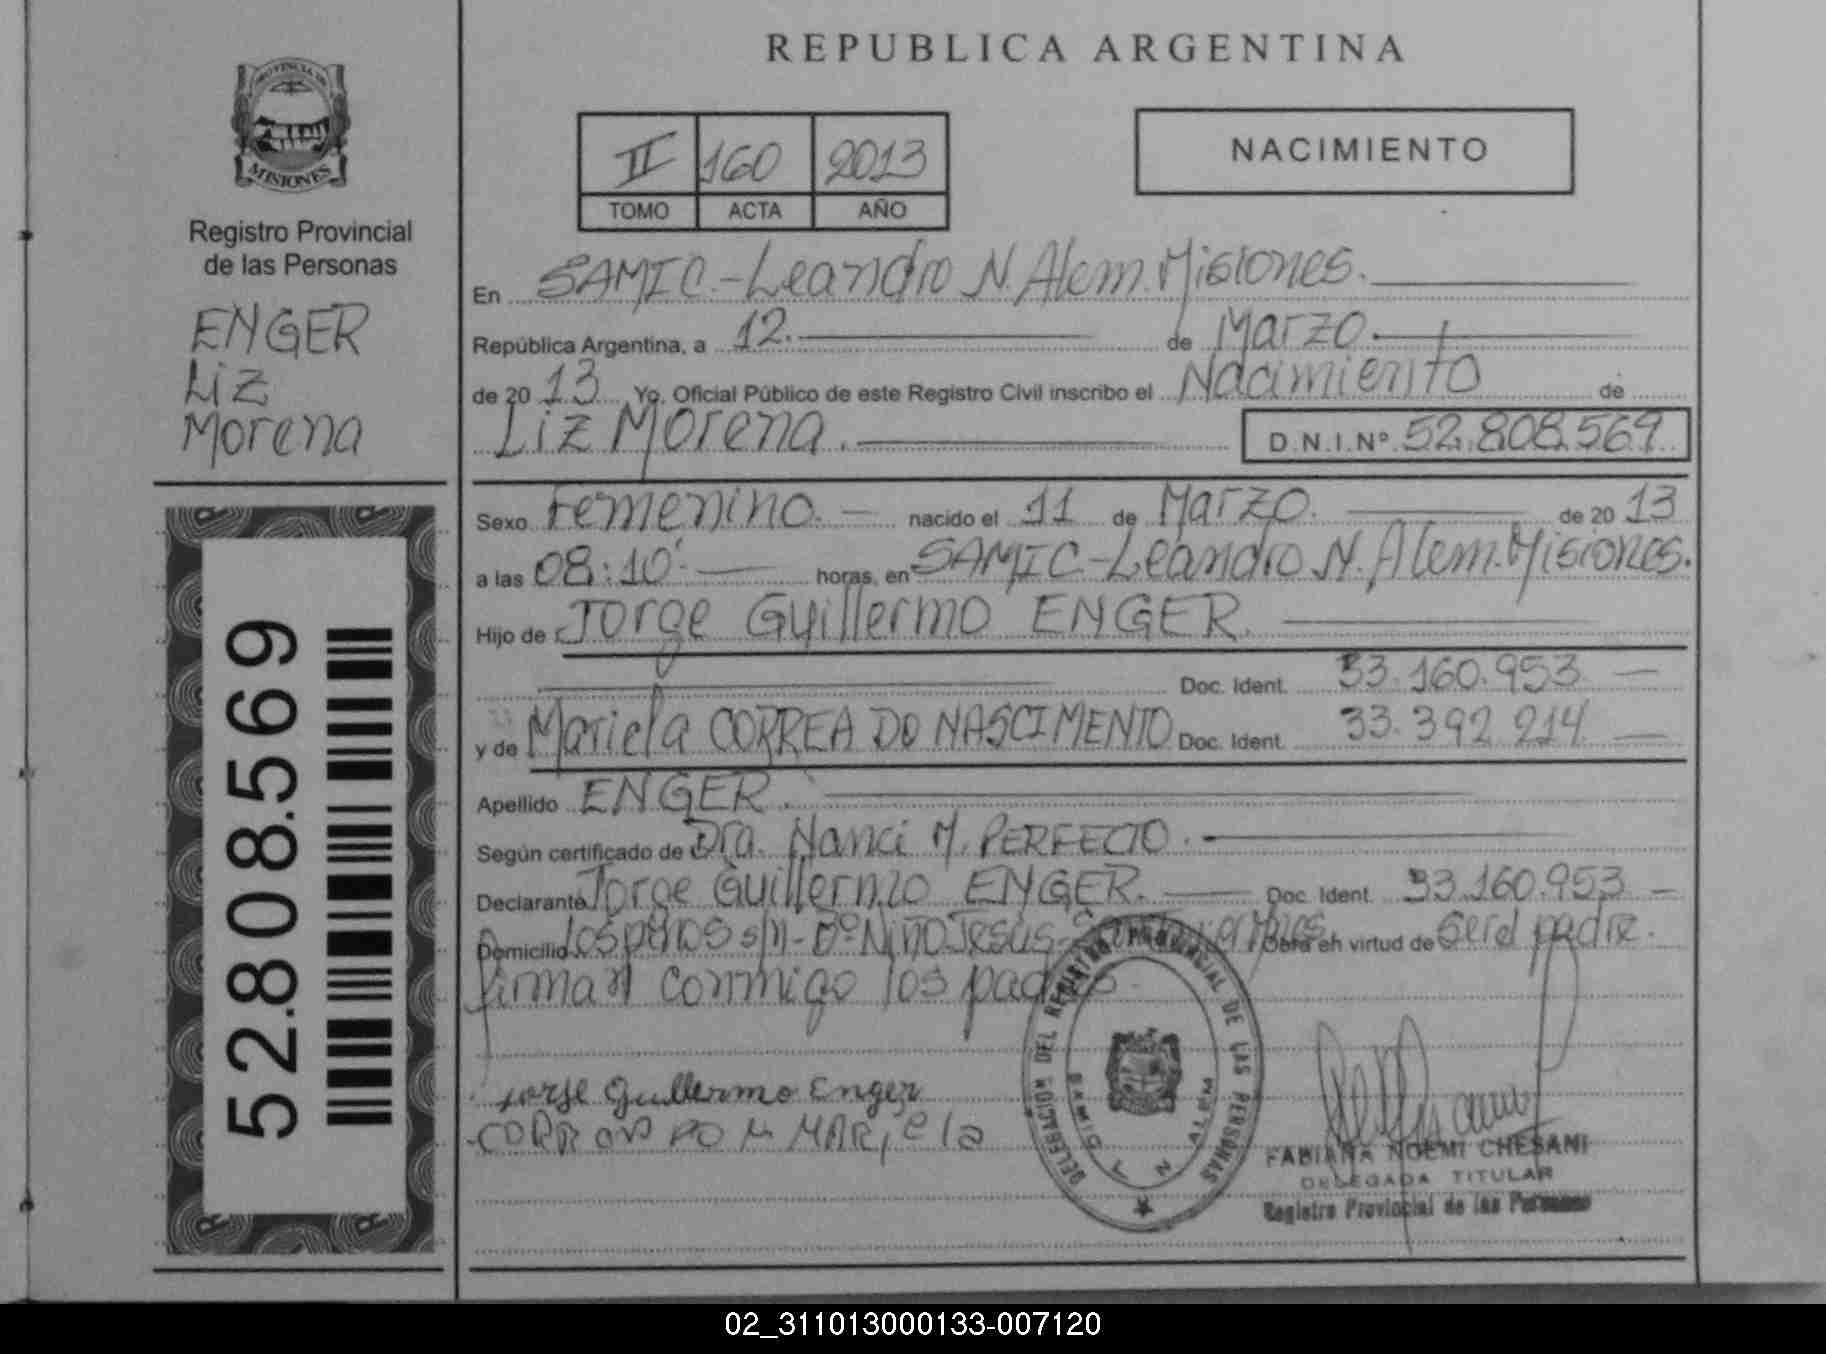 REPUBLICA ARGENTINA
PROVINCIA DE
MISIONES
Registro Provincial
de las Personas
ENGER
Liz
Morena
52.808.569
II 160 2013
TOMO ACTA AÑO
NACIMIENTO
En SAMIC.-Leandro N. Alem. Misiones.
República Argentina, a 12. de Marzo.
de 20 13 Yo, Oficial Público de este Registro Civil inscribo el Nacimiento de
Liz Morena. D.N.I.Nº 52.808.569
Sexo Femenino. nacido el 11 de Marzo. de 20 13
a las 08:10 horas, en SAMIC-Leandro N. Alem. Misiones.
Hijo de Jorge Guillermo ENGER.
Doc. Ident. 33.160.953
y de Mariela CORREA DO NASCIMENTO Doc. Ident. 33.392.214
Apellido ENGER.
Según certificado de Dra. Nanci M. PERFECTO.
Declarante Jorge Guillermo ENGER. Doc. Ident. 33.160.953
Domicilio los pinos s/n-Bº Niño Jesús- Obra en virtud de ser el padre.
firman conmigo los padres.
Jorge Guillermo Enger
MARiela
DELEGACION DEL REGISTRO PROVINCIAL DE LAS PERSONAS
SAMIC L N ALEM
FABIANA NOEMI CHESANI
DELEGADA TITULAR
Registro Provincial de las Personas
02_311013000133-007120